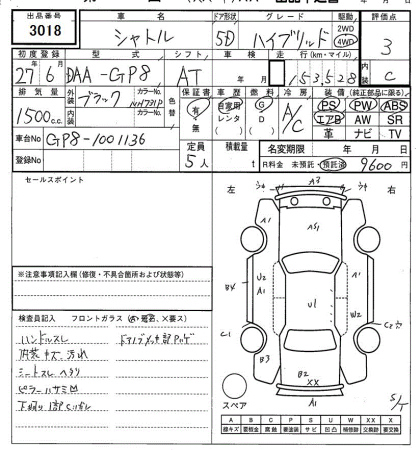 出品番号
3018
車名
シャトル
ドア形状
5D
グレード
ハイブリッド
駆動
2WD
4WD
評価点
3
初度登録
27年6月
型式
DAA-GP8
シフト
AT
車検
年 月
走行(km・マイル)
153528
内装
C
排気量
1500c.c.
外装
ブラック
カラーNo.
NH731P
内装
カラーNo.
色替
保証書
有・無
車歴
自家用
レンタ
燃料
G
D
冷房
A/C
装備(純正部品に限る)
PS PW ABS
エアB AW SR
革 ナビ TV
車台No
GP8-1001136
定員
5人
積載量
t
名変期限
年 月 日
登録No
R料金 未預託・預託済
9600円
セールスポイント
左
右
※注意事項記入欄(修復・不具合箇所および状態等)
検査員記入
フロントガラス
ハンドルスレ
内装キズ 汚れ
シートスレ ヘタリ
A3
A1
AS1
A1
B4
U2
A1
U1
W2
C1
B3
B2
XX
A1
スペア
S/T
A B C P S U W X XX
線キズ 要板金 腐蝕 要塗装 サビ 凹凸 補修跡 交換跡 要交換